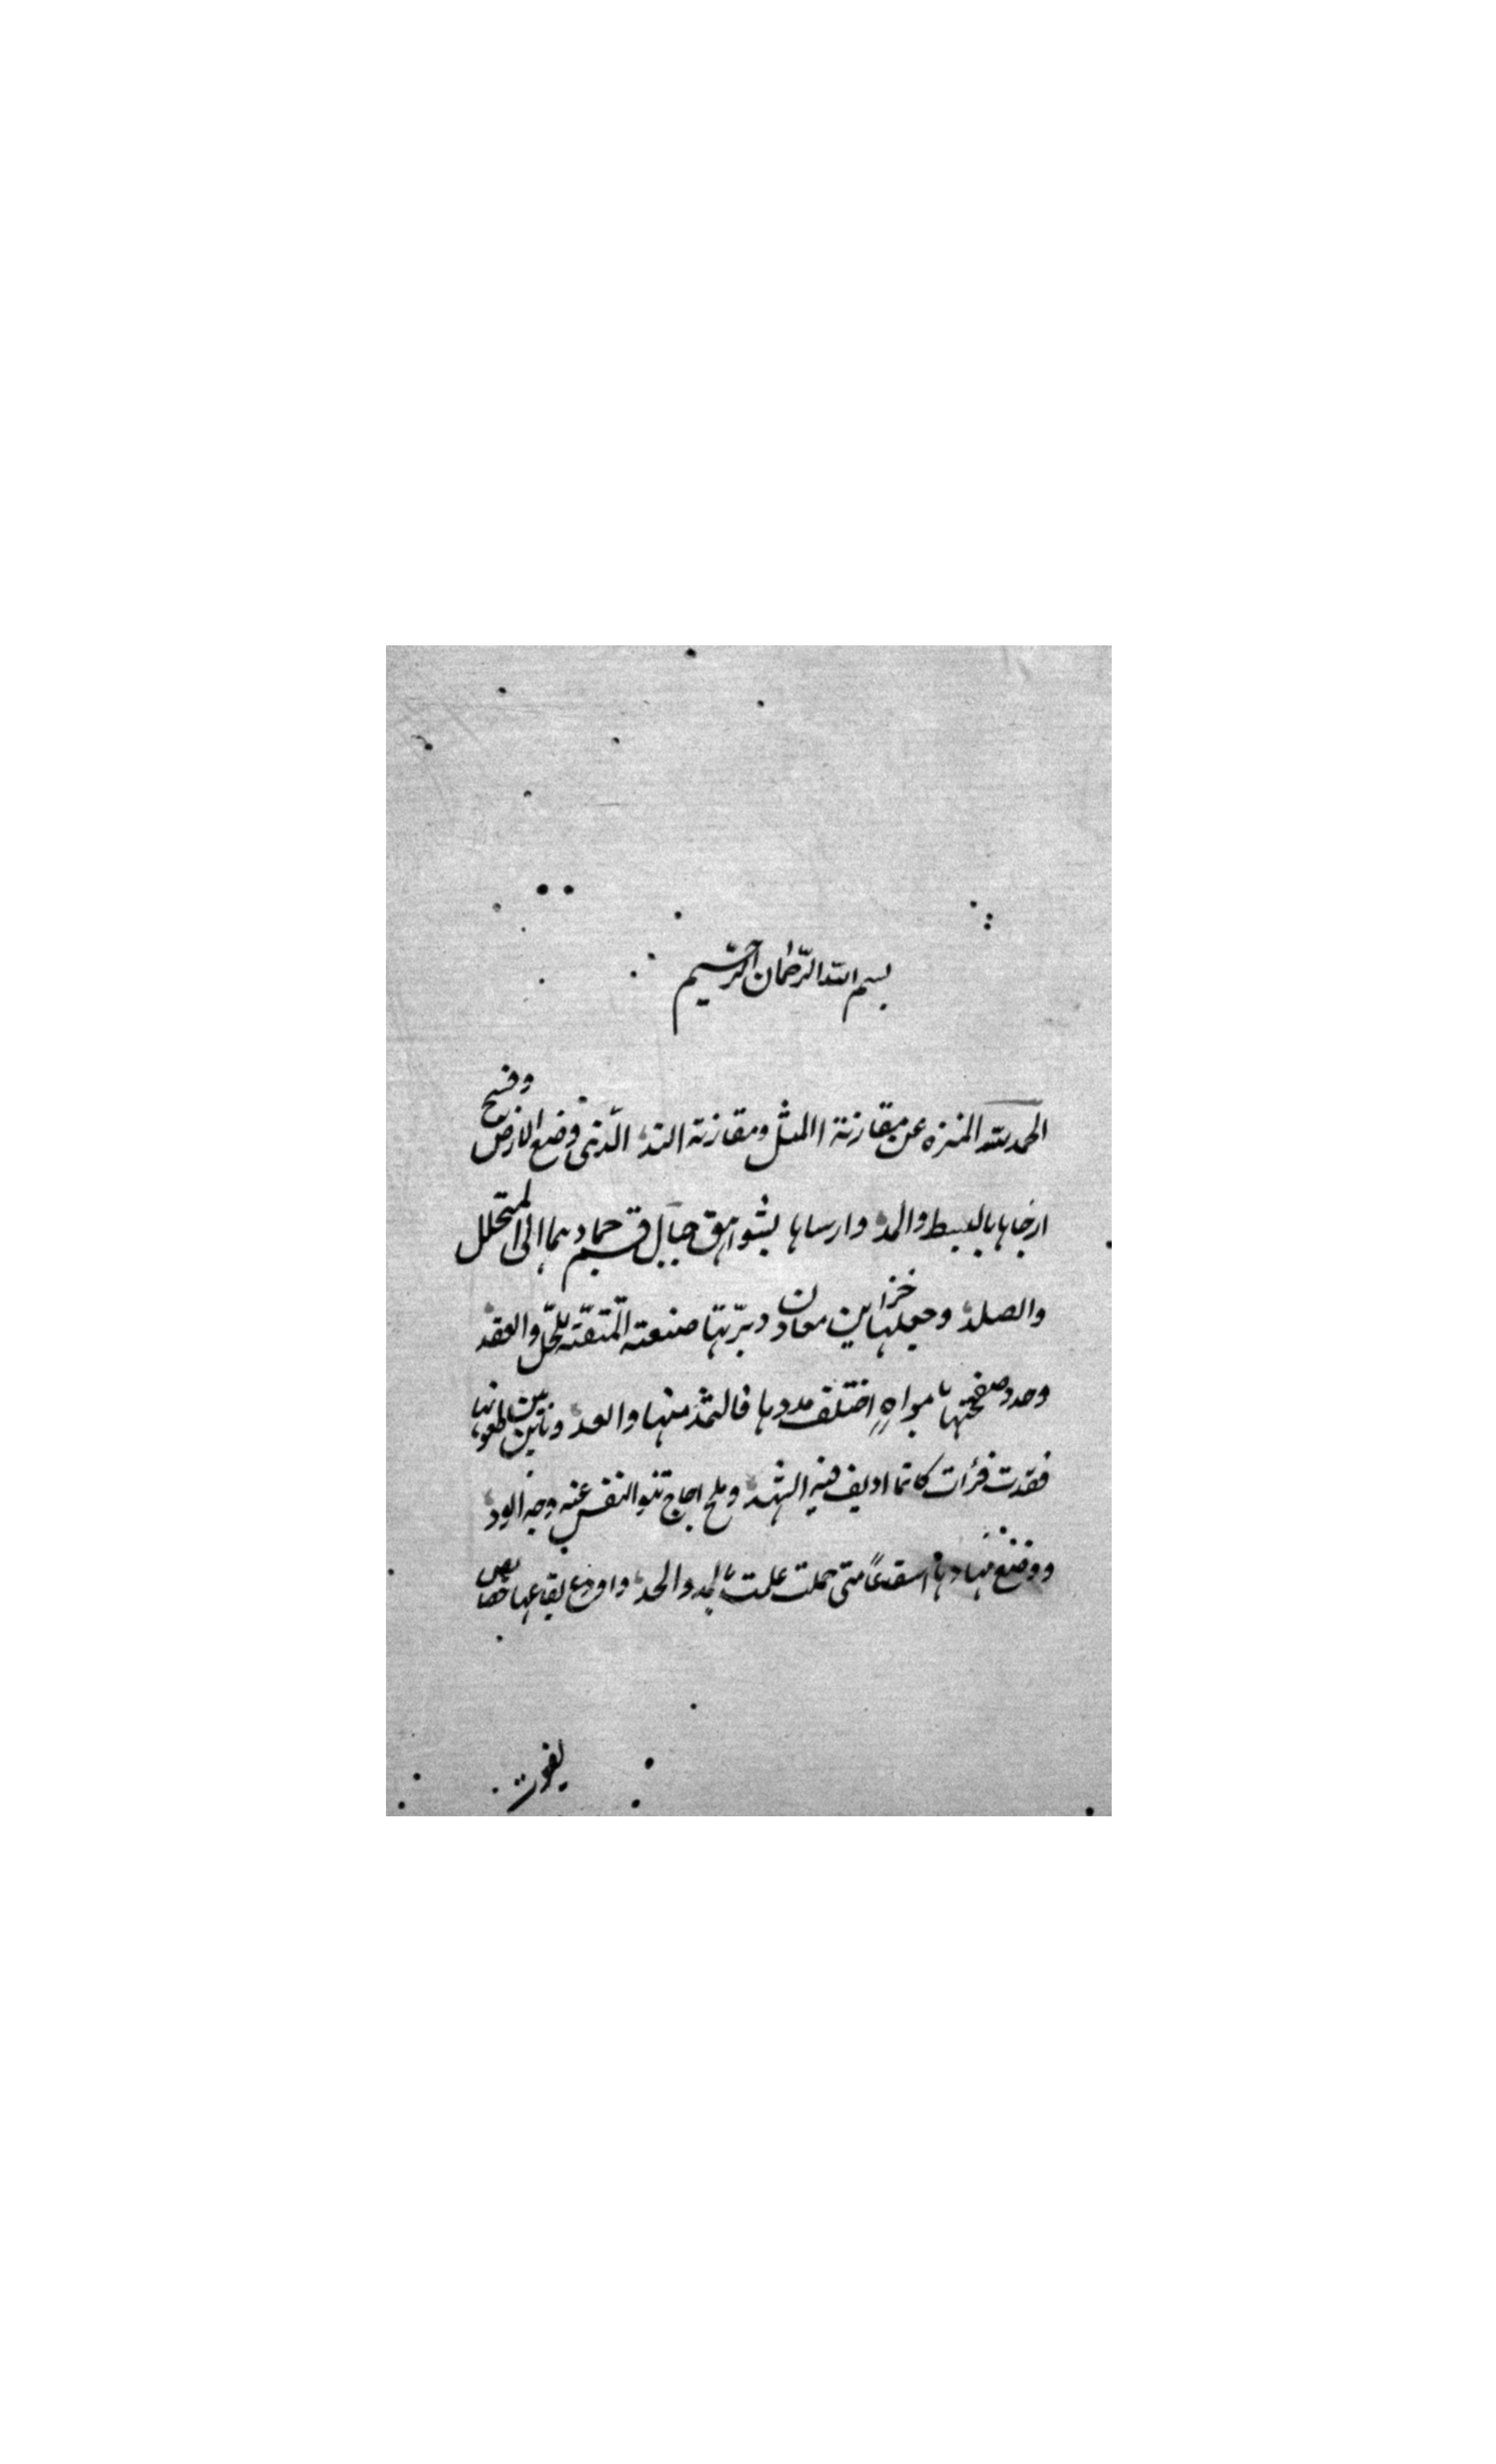 بسم الله الرحمان الرحيم
الحمد لله المنزه عن مقارنة المثل ومقارنة الند الذى وضع الارض وفسح
ارجاها بالبسط والمد وارساها بشواهق جبال قسم جمادهما الى المتحلل
والصلد وجعلها خزاين معادن دبرتها صنعته المتقنة بالحل والعقد
وحدد صفحتها بامواه اختلف مددها فالثمد منها والعد وباين بين طعومها
فرات كانما اديف فيه الشهد وملح اجاج تنبو النفس عنه وجه الود
ووضع متى حملت علت بالجد والحد واودع بقاعها خصايص
يفوت